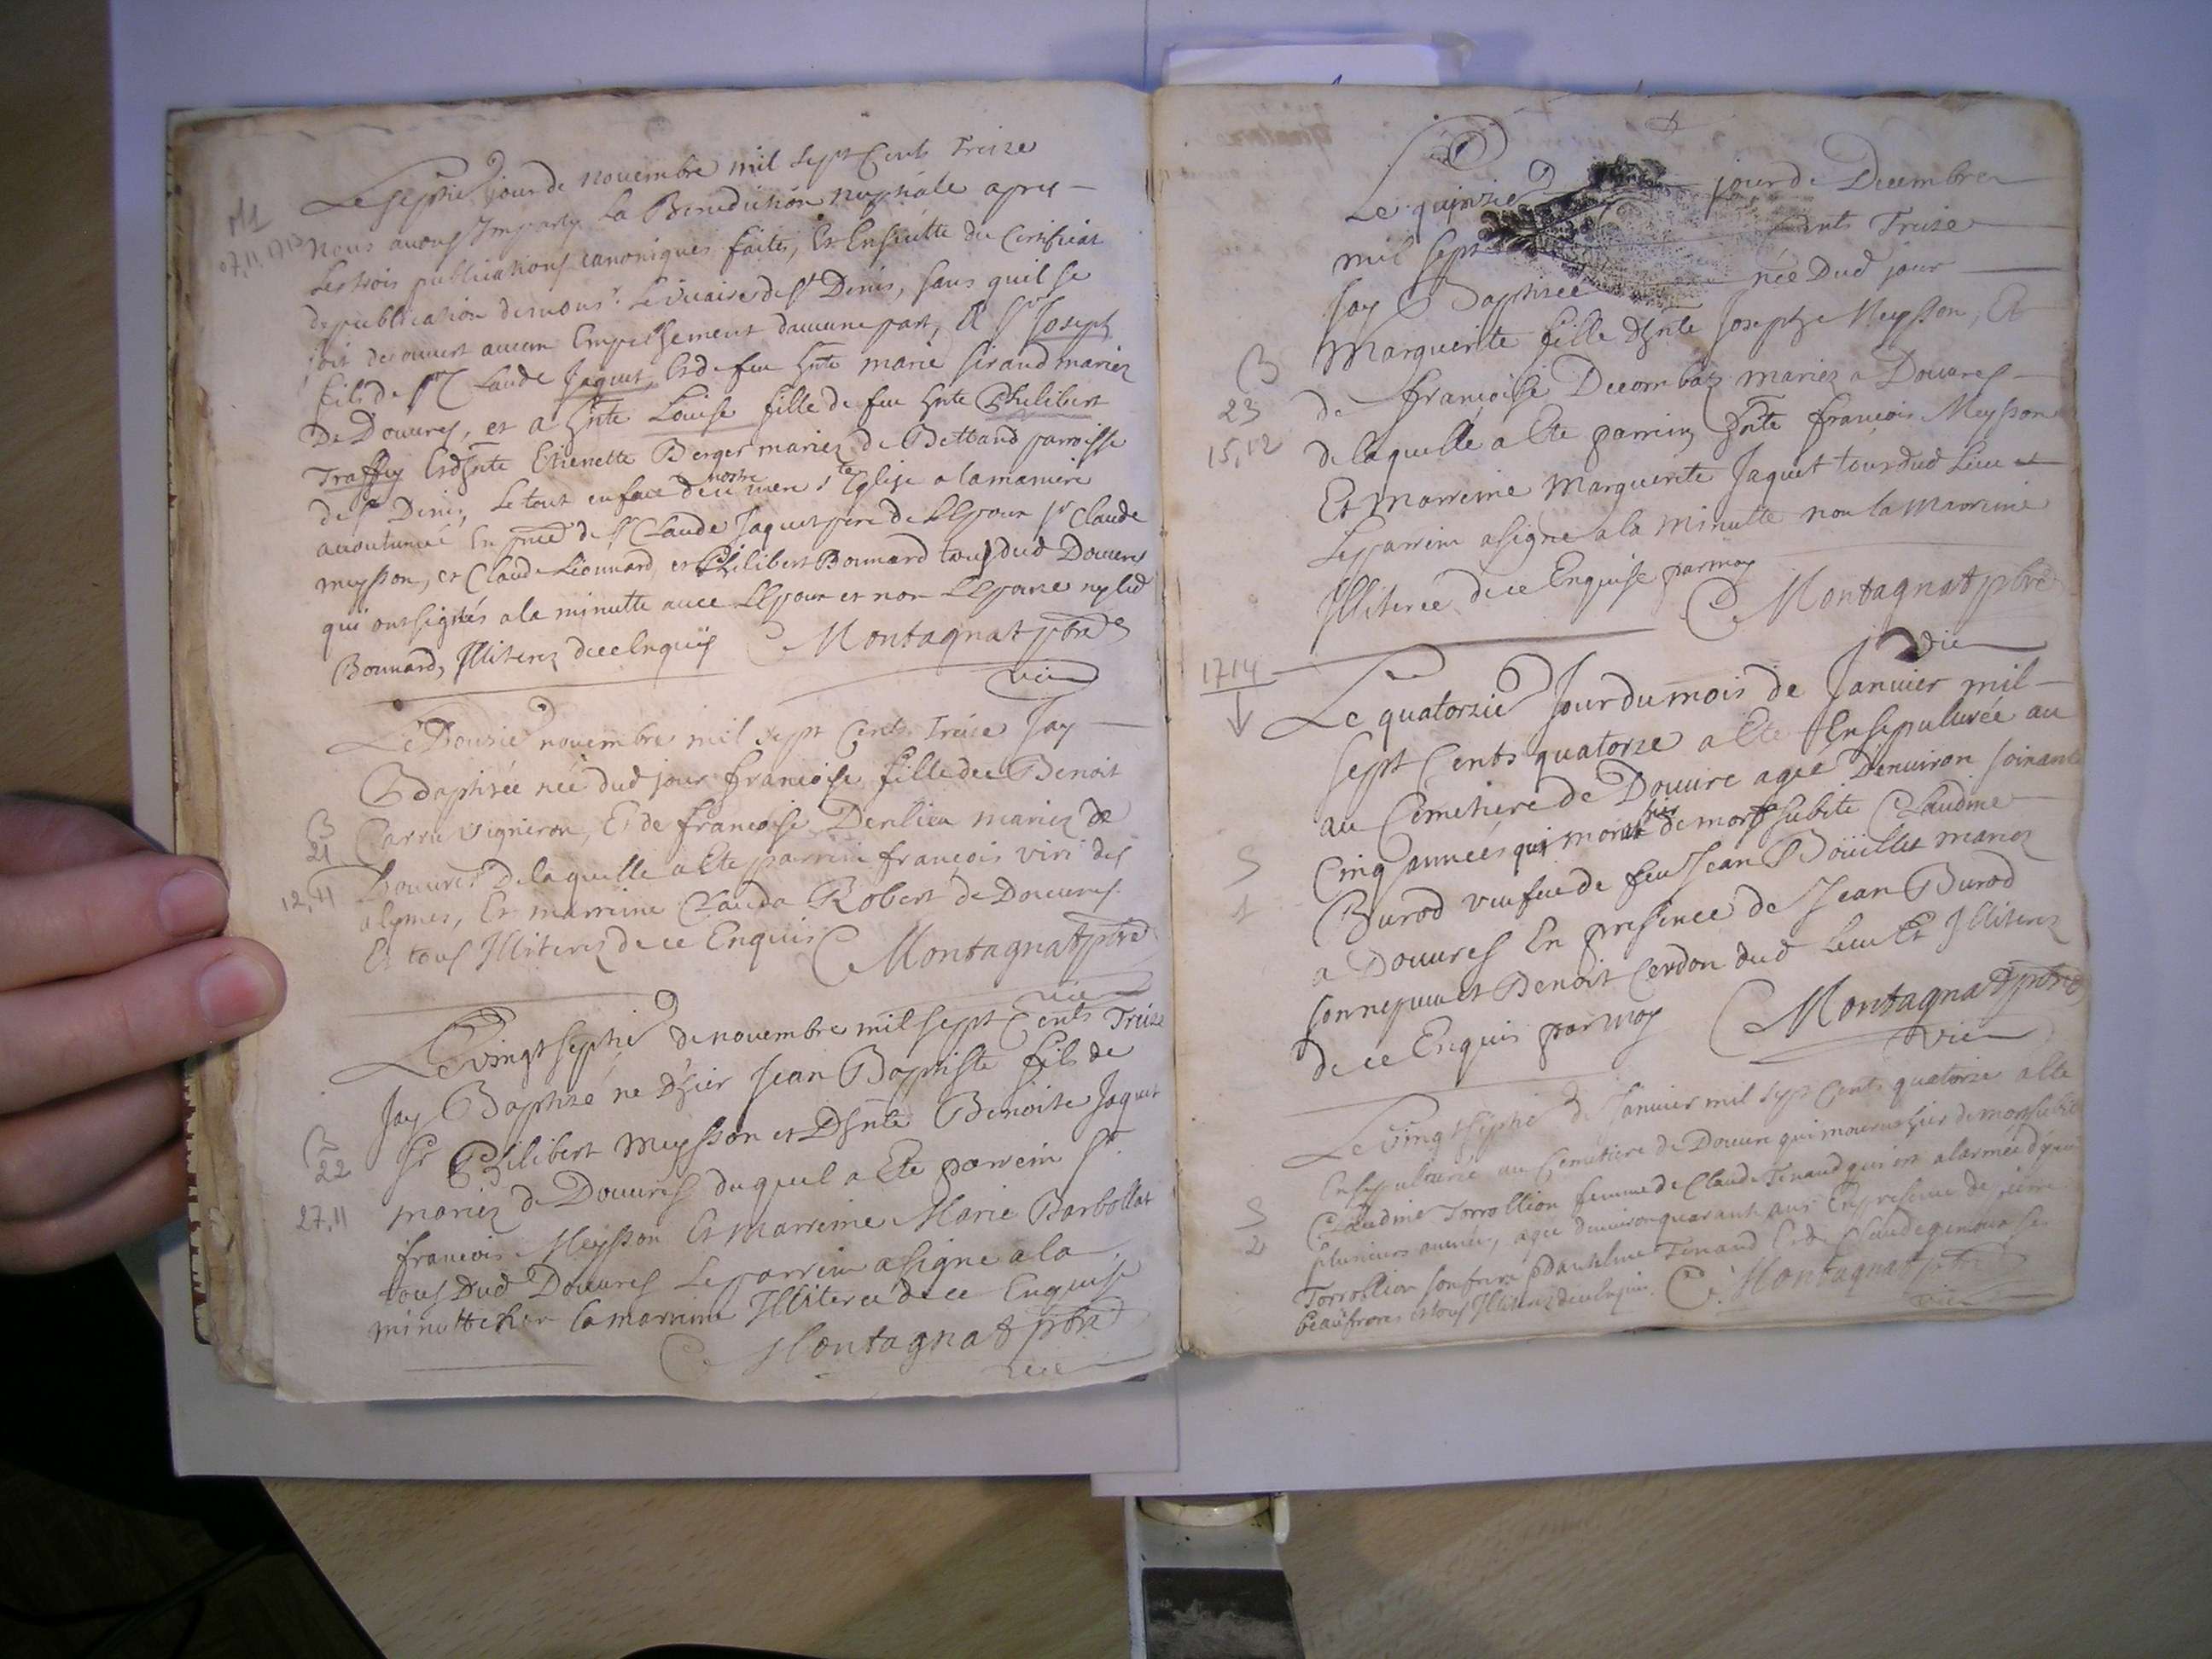 Le septie jour de novembre mil sept Cents Treize
M1
07,11,1713
nous avons Imparty La Benediction nuptiale apres
Les trois publications canoniques faites, Et Ensuitte du Certificat
de publication de monsr. Le vicaire de st Denis, sans quil se
soit decouvert aucun Empeschement daucune part, A sr Joseph
fils de sr Claude Jaquet, Et de feu hnte marie Giraud mariez
De Douvres, et a hnte Louise fille de feu hnte Philibert
Traffey Et dhnte Etienette Berger mariez de Bettand parroisse
de st Denis, Le tout en face de nostre mere ste Eglise a la maniere
accoutumée En pnce de sr Claude Jaquet pere de LEpoux sr Claude
meysson, et Claude Léonnard, et Philibert Bonnard tous dud Douvres
qui ont signés a la minutte avec LEpoux et non LEpouse ny led
Bonnard, Illiterez de ce Enquis C Montagnat pbre
vic
Le Douzie novembre mil sept Cents Treize Jay
Baptisée née dud jour francoise fille de Benoit
B
21
Carru vigneron, Et de francoise Derlieu mariez de
Douvres De laquelle a Ete parrin francois viri des
12,11
alymes, Et marreine Clauda Robert de Douvres.
Et tous Illiterez de ce Enquis C Montagnat pbre
vic
Le vingt septie de novembre mil sept Cents Treize
Jay Baptizé né Dhier Jean Baptiste fils de
B
22
sr Philibert Meysson et Dhnte Benoite Jaquet
mariez de Douvres duquel a Ete parrein sr.
27,11
francois Meysson Et marreine Marie Barbollat
tous Dud Douvres Le parrin a signe a la
minutte non la marrine Illiterée de ce Enquise
C Montagnat pbre
vic
Le quinzie jour de Decembre
mil sept Cents Treize
Jay Baptisée née Dud jour
Marguerite fille dhnte Joseph Meysson, Et
B
23
15,12
de francoise Decombaz mariez a Douvres
de laquelle a Ete parrein hnte francois Meysson
Et marreine Marguerite Jaquet tous dud Lieu et
Le parrein a signe a la minutte non la marreine
Illiterée de ce Enquise par moy
C Montagnat pbre
vic
1714
Le quatorzie Jour du mois de Janvier mil
sept Cents quatorze a Ete Ensepulturée au
au Cemetiere de Douvre agée Denviron soixante
Cinq années qui morut hier de mort subite Claudine
S
1
Burod veufue de feu Jean Boüillet mariez
a Douvres En presence de Jean Burod
son nepveu et Benoit Cerdon dud Lieu Et Illiterez
de ce Enquis par moy C Montagnat pbre
vic
Le vingt septie de Janvier mil sept Cents quatorze a Ete
Ensepulturée au Cemetiere de Douvre qui mourut hier de mort subite
S
2
Claudine Torrollion femme de Claude Tenand qui est a larmée depuis
plusieurs années, agée denviron quarante ans En presence de pierre
Torrollion son frere Tenand Et de Claude
beaufrere Et tous Illiterez de ce Enquis. C Montagnat pbre
vic